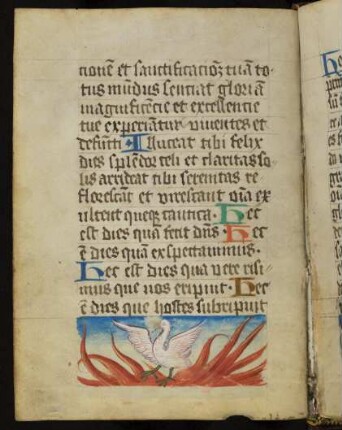 tionē et sanctificatiōꝫ tuā to
tus mūdus sentiat gloriā
magnificēcie et excellentie
tue experiātur viuentes et
defūcti Illuceat tibi felix
dies splēdor celi et claritas so
lis arrideat tibi serenitas re
florescāt et virescant oīa ex
ultent queqꝫ cautica. Hec
est dies quā fecit dn̄s. Hec
ē dies quā exspectauimus.
Hec est dies qua vere risi
mus que nos eripuit. Hec
ē dies que hostes subripuit